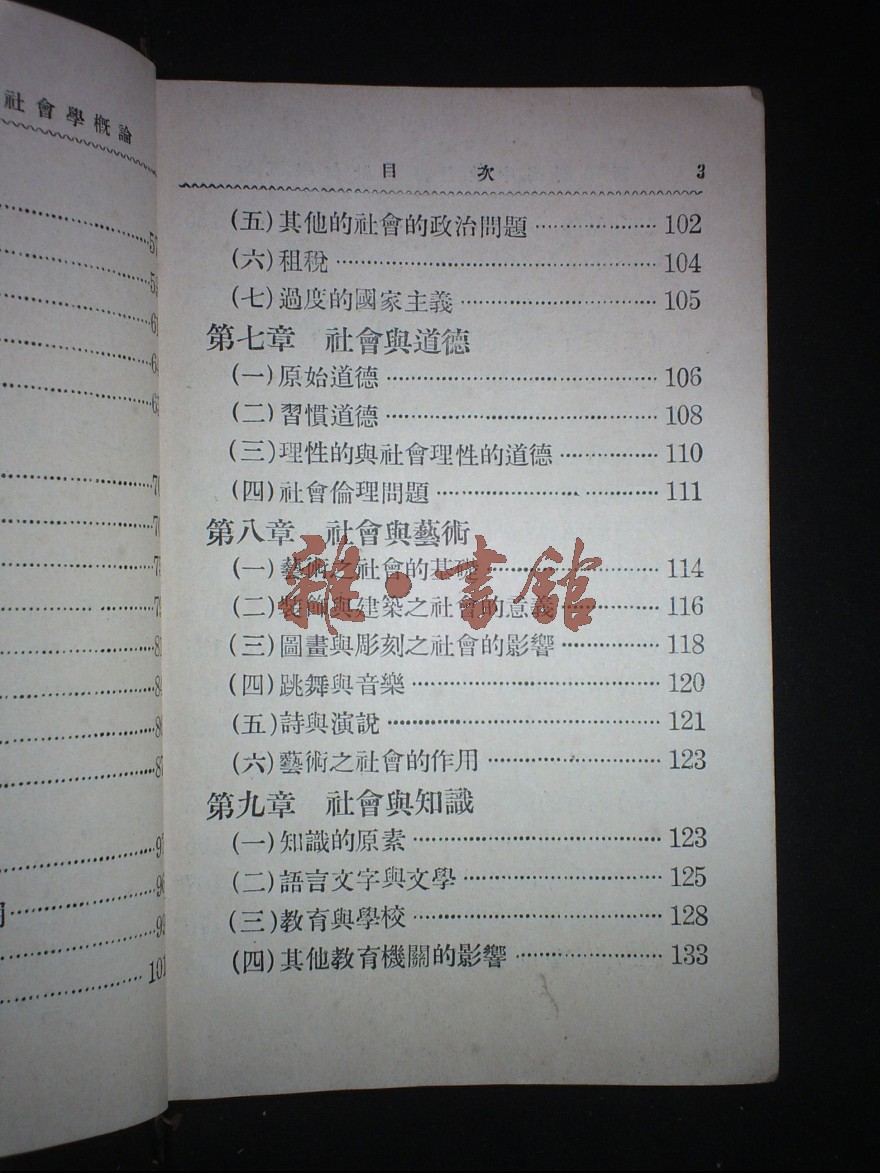 社會學概論
57
59
61
101
目 次 3
(五)其他的社會的政治問題 ………………… 102
(六)租稅 ………………… 104
(七)過度的國家主義 ………………… 105
第七章 社會與道德
(一)原始道德 ………………… 106
(二)習慣道德 ………………… 108
(三)理性的與社會理性的道德 ………………… 110
(四)社會倫理問題 ………………… 111
第八章 社會與藝術
(一)藝術之社會的基礎 ………………… 114
(二)裝飾與建築之社會的意義 ………………… 116
(三)圖畫與彫刻之社會的影響 ………………… 118
(四)跳舞與音樂 ………………… 120
(五)詩與演說 ………………… 121
(六)藝術之社會的作用 ………………… 123
第九章 社會與知識
(一)知識的原素 ………………… 123
(二)語言文字與文學 ………………… 125
(三)教育與學校 ………………… 128
(四)其他教育機關的影響 ………………… 133
雅·書館